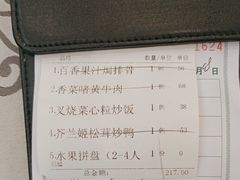 品名 数量/单位 单价
1.百香果汁焗排骨 1例 58
2.香菜啫黄牛肉 1例 68
3.叉烧菜心粒炒饭 1例 38
4.芥兰姬松茸炒鸭 1例 53
5.水果拼盘（2-4人 1例 0
总金额： 217.00
1624